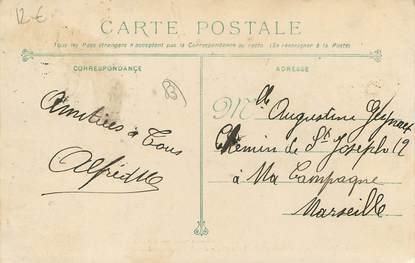 12 €
CARTE POSTALE
Tous les Pays étrangers n'acceptent pas la Correspondance au recto (Se renseigner à la Poste)
CORRESPONDANCE
ADRESSE
Amitiées à Tous
Alfred
Mlle Augustine
Chemin de St Joseph 12
à Ma Campagne
Marseille